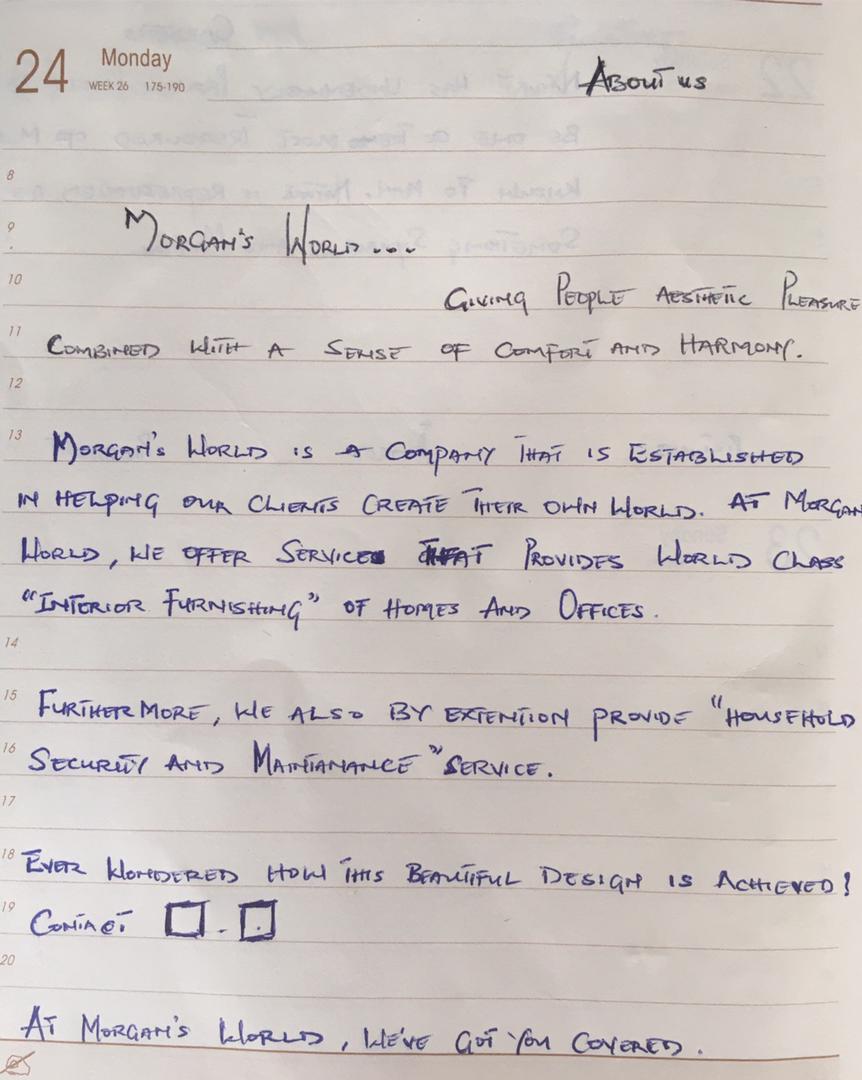 24 Monday
WEEK 26 175-190
About us
8
9 Morgan's World...
10 Giving People Aesthetic Pleasure
11 Combined with a sense of comfort and harmony.
12
13 Morgan's World is a company that is established
in helping our clients create their own world. At Morgan
World, we offer Services that provides world class
"Interior Furnishing" of homes and offices.
14
15 Furthermore, we also by extention provide "household
16 Security and Maintanance" service.
17
18 Ever wondered how this beautiful design is achieved!
19 Contact
20
At Morgan's World, we've got you covered.